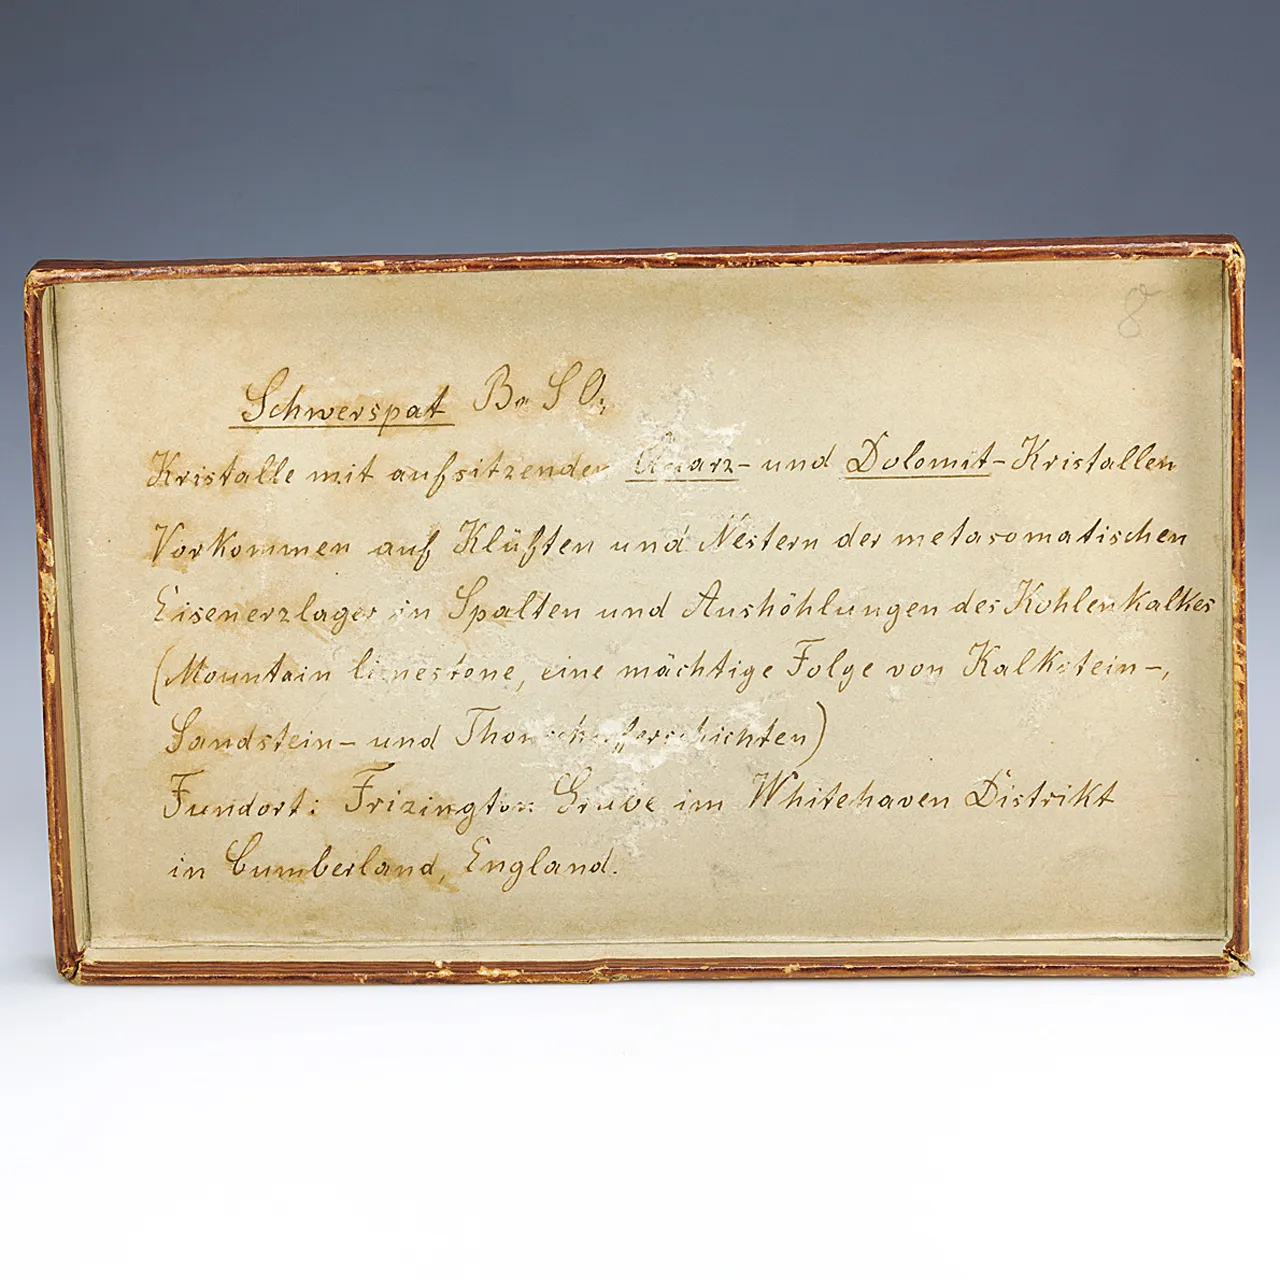 8
Schwerspat BaSO₄
Kristalle mit aufsitzenden Quarz- und Dolomit-Kristallen
Vorkommen auf Klüften und Nestern der metasomatischen
Eisenerzlager in Spalten und Aushöhlungen des Kohlenkalkes
(Mountain limestone, eine mächtige Folge von Kalkstein-,
Sandstein- und Thonschieferschichten)
Fundort: Frizington Grube im Whitehaven Distrikt
in Cumberland, England.